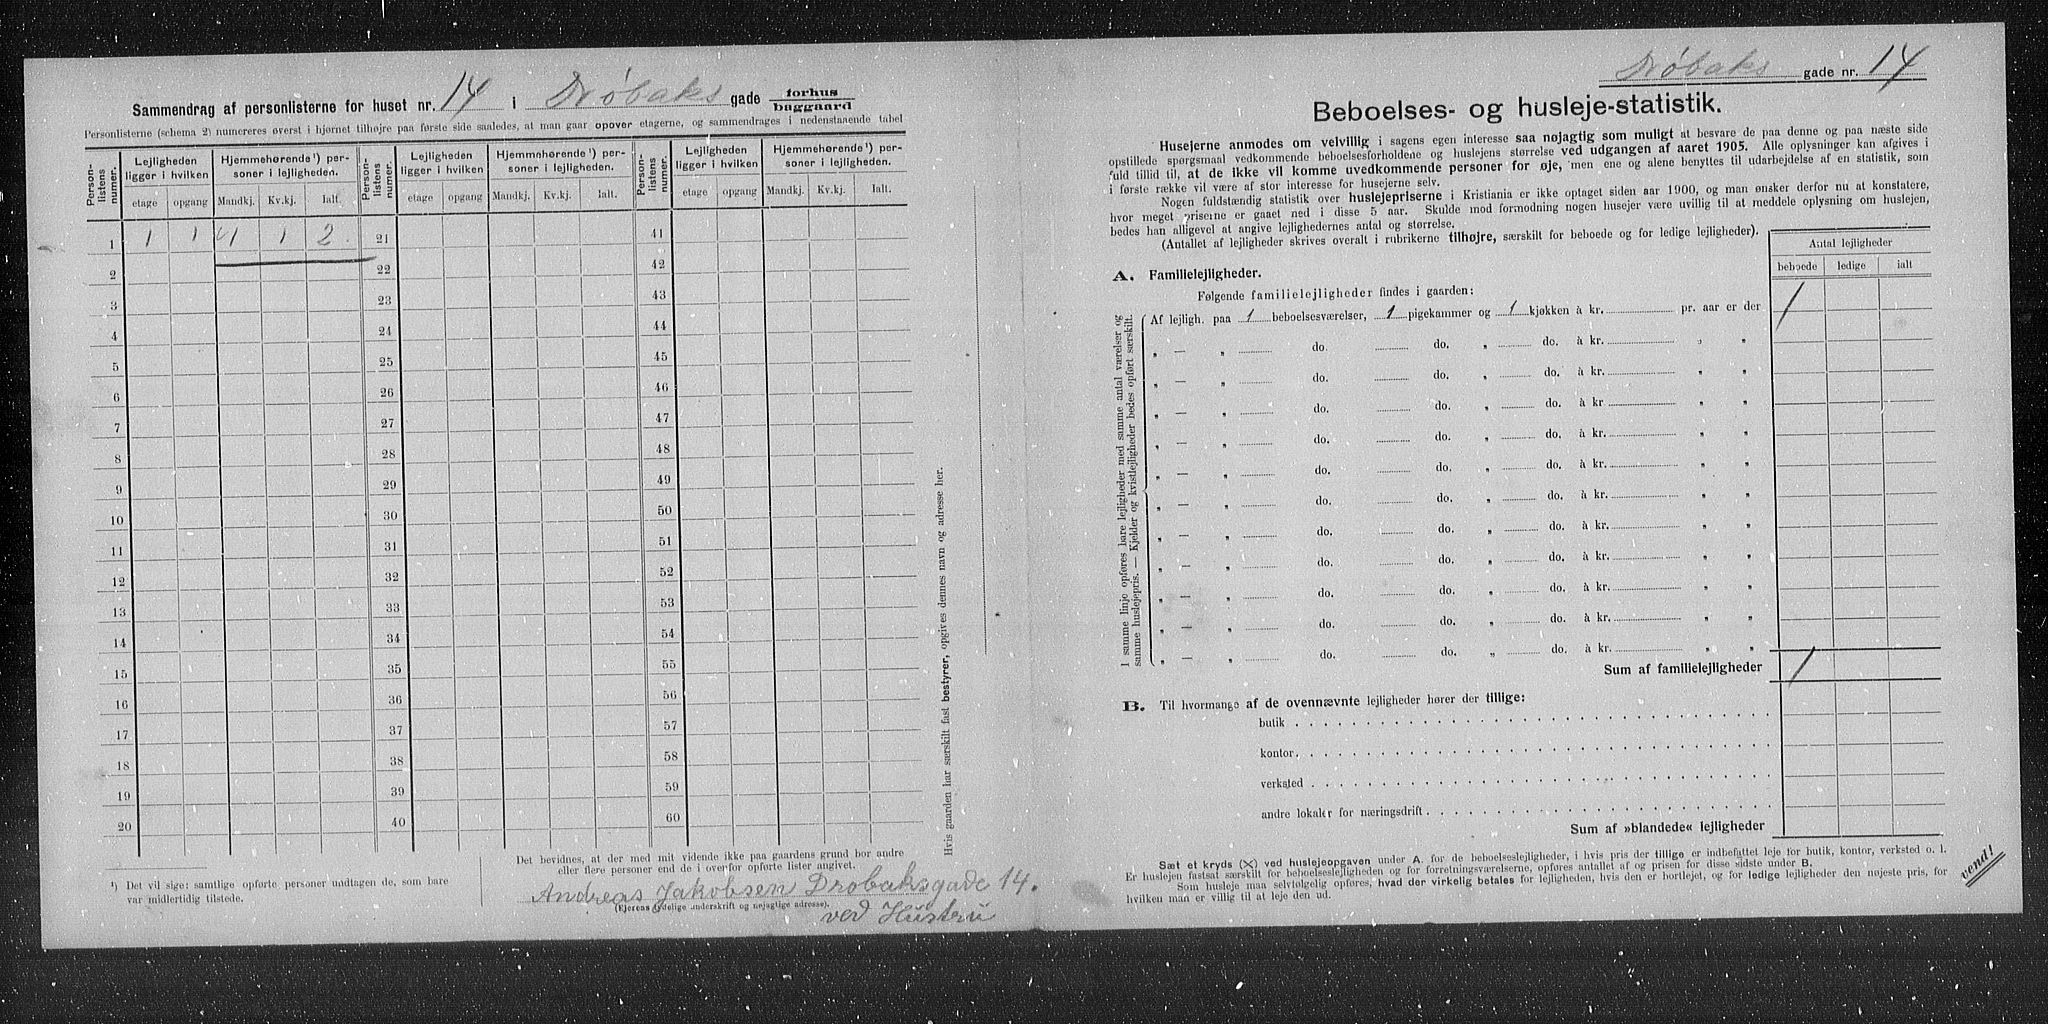 Sammendrag af personlisterne for huset nr. 14 i Drøbaks gade forhus baggaard
Personlisterne (schema 2) numereres øverst i hjørnet tilhøjre paa første side saaledes, at man gaar opover etagerne, og sammendrages i nedenstaaende tabel
Person-listens numer. Lejligheden ligger i hvilken etage opgang Hjemmehørende ¹) personer i lejligheden. Mandkj. Kv.kj. Ialt.
Person-listens numer. Lejligheden ligger i hvilken etage opgang Hjemmehørende ¹) personer i lejligheden. Mandkj. Kv.kj. Ialt.
Person-listens numer. Lejligheden ligger i hvilken etage opgang Hjemmehørende ¹) personer i lejligheden. Mandkj. Kv.kj. Ialt.
1 1 1 1 1 2 21 41
2 22 42
3 23 43
4 24 44
5 25 45
6 26 46
7 27 47
8 28 48
9 29 49
10 30 50
11 31 51
12 32 52
13 33 53
14 34 54
15 35 55
16 36 56
17 37 57
18 38 58
19 39 59
20 40 60
¹) Det vil sige: samtlige opførte personer undtagen de, som bare
var midlertidig tilstede.
Det bevidnes, at der med mit vidende ikke paa gaardens grund bor andre
eller flere personer end de i overfor opførte lister angivet.
Andreas Jakobsen Drøbaksgade 14.
(Ejerens tydelige underskrift og nøjagtige adresse).
ved Hustru
Hvis gaarden har særskilt fast bestyrer, opgives dennes navn og adresse her.
Drøbaks gade nr. 14
Beboelses- og husleje-statistik.
Husejerne anmodes om velvillig i sagens egen interesse saa nøjagtig som muligt at besvare de paa denne og paa næste side
opstillede spørgsmaal vedkommende beboelsesforholdene og huslejens størrelse ved udgangen af aaret 1905. Alle oplysninger kan afgives i
fuld tillid til, at de ikke vil komme uvedkommende personer for øje, men ene og alene benyttes til udarbejdelse af en statistik, som
i første række vil være af stor interesse for husejerne selv.
Nogen fuldstændig statistik over huslejepriserne i Kristiania er ikke optaget siden aar 1900, og man ønsker derfor nu at konstatere,
hvor meget priserne er gaaet ned i disse 5 aar. Skulde mod formodning nogen husejer være uvillig til at meddele oplysning om huslejen,
bedes han alligevel at angive lejlighedernes antal og størrelse.
(Antallet af lejligheder skrives overalt i rubrikerne tilhøjre, særskilt for beboede og for ledige lejligheder).
Antal lejligheder
beboede ledige ialt
A. Familielejligheder.
Følgende familielejligheder findes i gaarden:
I samme linje opføres bare lejligheder med samme antal værelser og
samme huslejepris. — Kjelder og kvistlejligheder bedes opført særskilt.
Af lejligh. paa 1 beboelsesværelser, 1 pigekammer og 1 kjøkken à kr. pr. aar er der 1
„ — „ do. do. „ do. à kr. „ „
„ — „ do. do. „ do. à kr. „ „
„ — „ do. do. „ do. à kr „ „
„ — „ do. do. „ do. à kr. „ „
„ — „ do. do. „ do. à kr. „ „
„ — „ do. do. „ do. à kr. „ „
„ — „ do. do. „ do. à kr. „ „
„ — „ do. do. „ do. à kr. „ „
„ — „ do. do. „ do. à kr. „ „
„ — „ do. do. „ do. à kr. „ „
„ — „ do. do. „ do. à kr. „ „
Sum af familielejligheder 1
B. Til hvormange af de ovennævnte lejligheder hører der tillige:
butik
kontor
verksted
andre lokaler for næringsdrift
Sum af »blandede« lejligheder
Sæt et kryds (X) ved huslejeopgaven under A. for de beboelseslejligheder, i hvis pris der tillige er indbefattet leje for butik, kontor, verksted o. l.
Er huslejen fastsat særskilt for beboelseslejligheden og for forretningsværelserne, opføres antallet af og prisen for disse sidste under B.
Som husleje maa selvfølgelig opføres, hvad der virkelig betales for lejligheden, hvis den er bortlejet, og for ledige lejligheder den nøjeste pris, for
hvilken man er villig til at leje den ud.
vend!